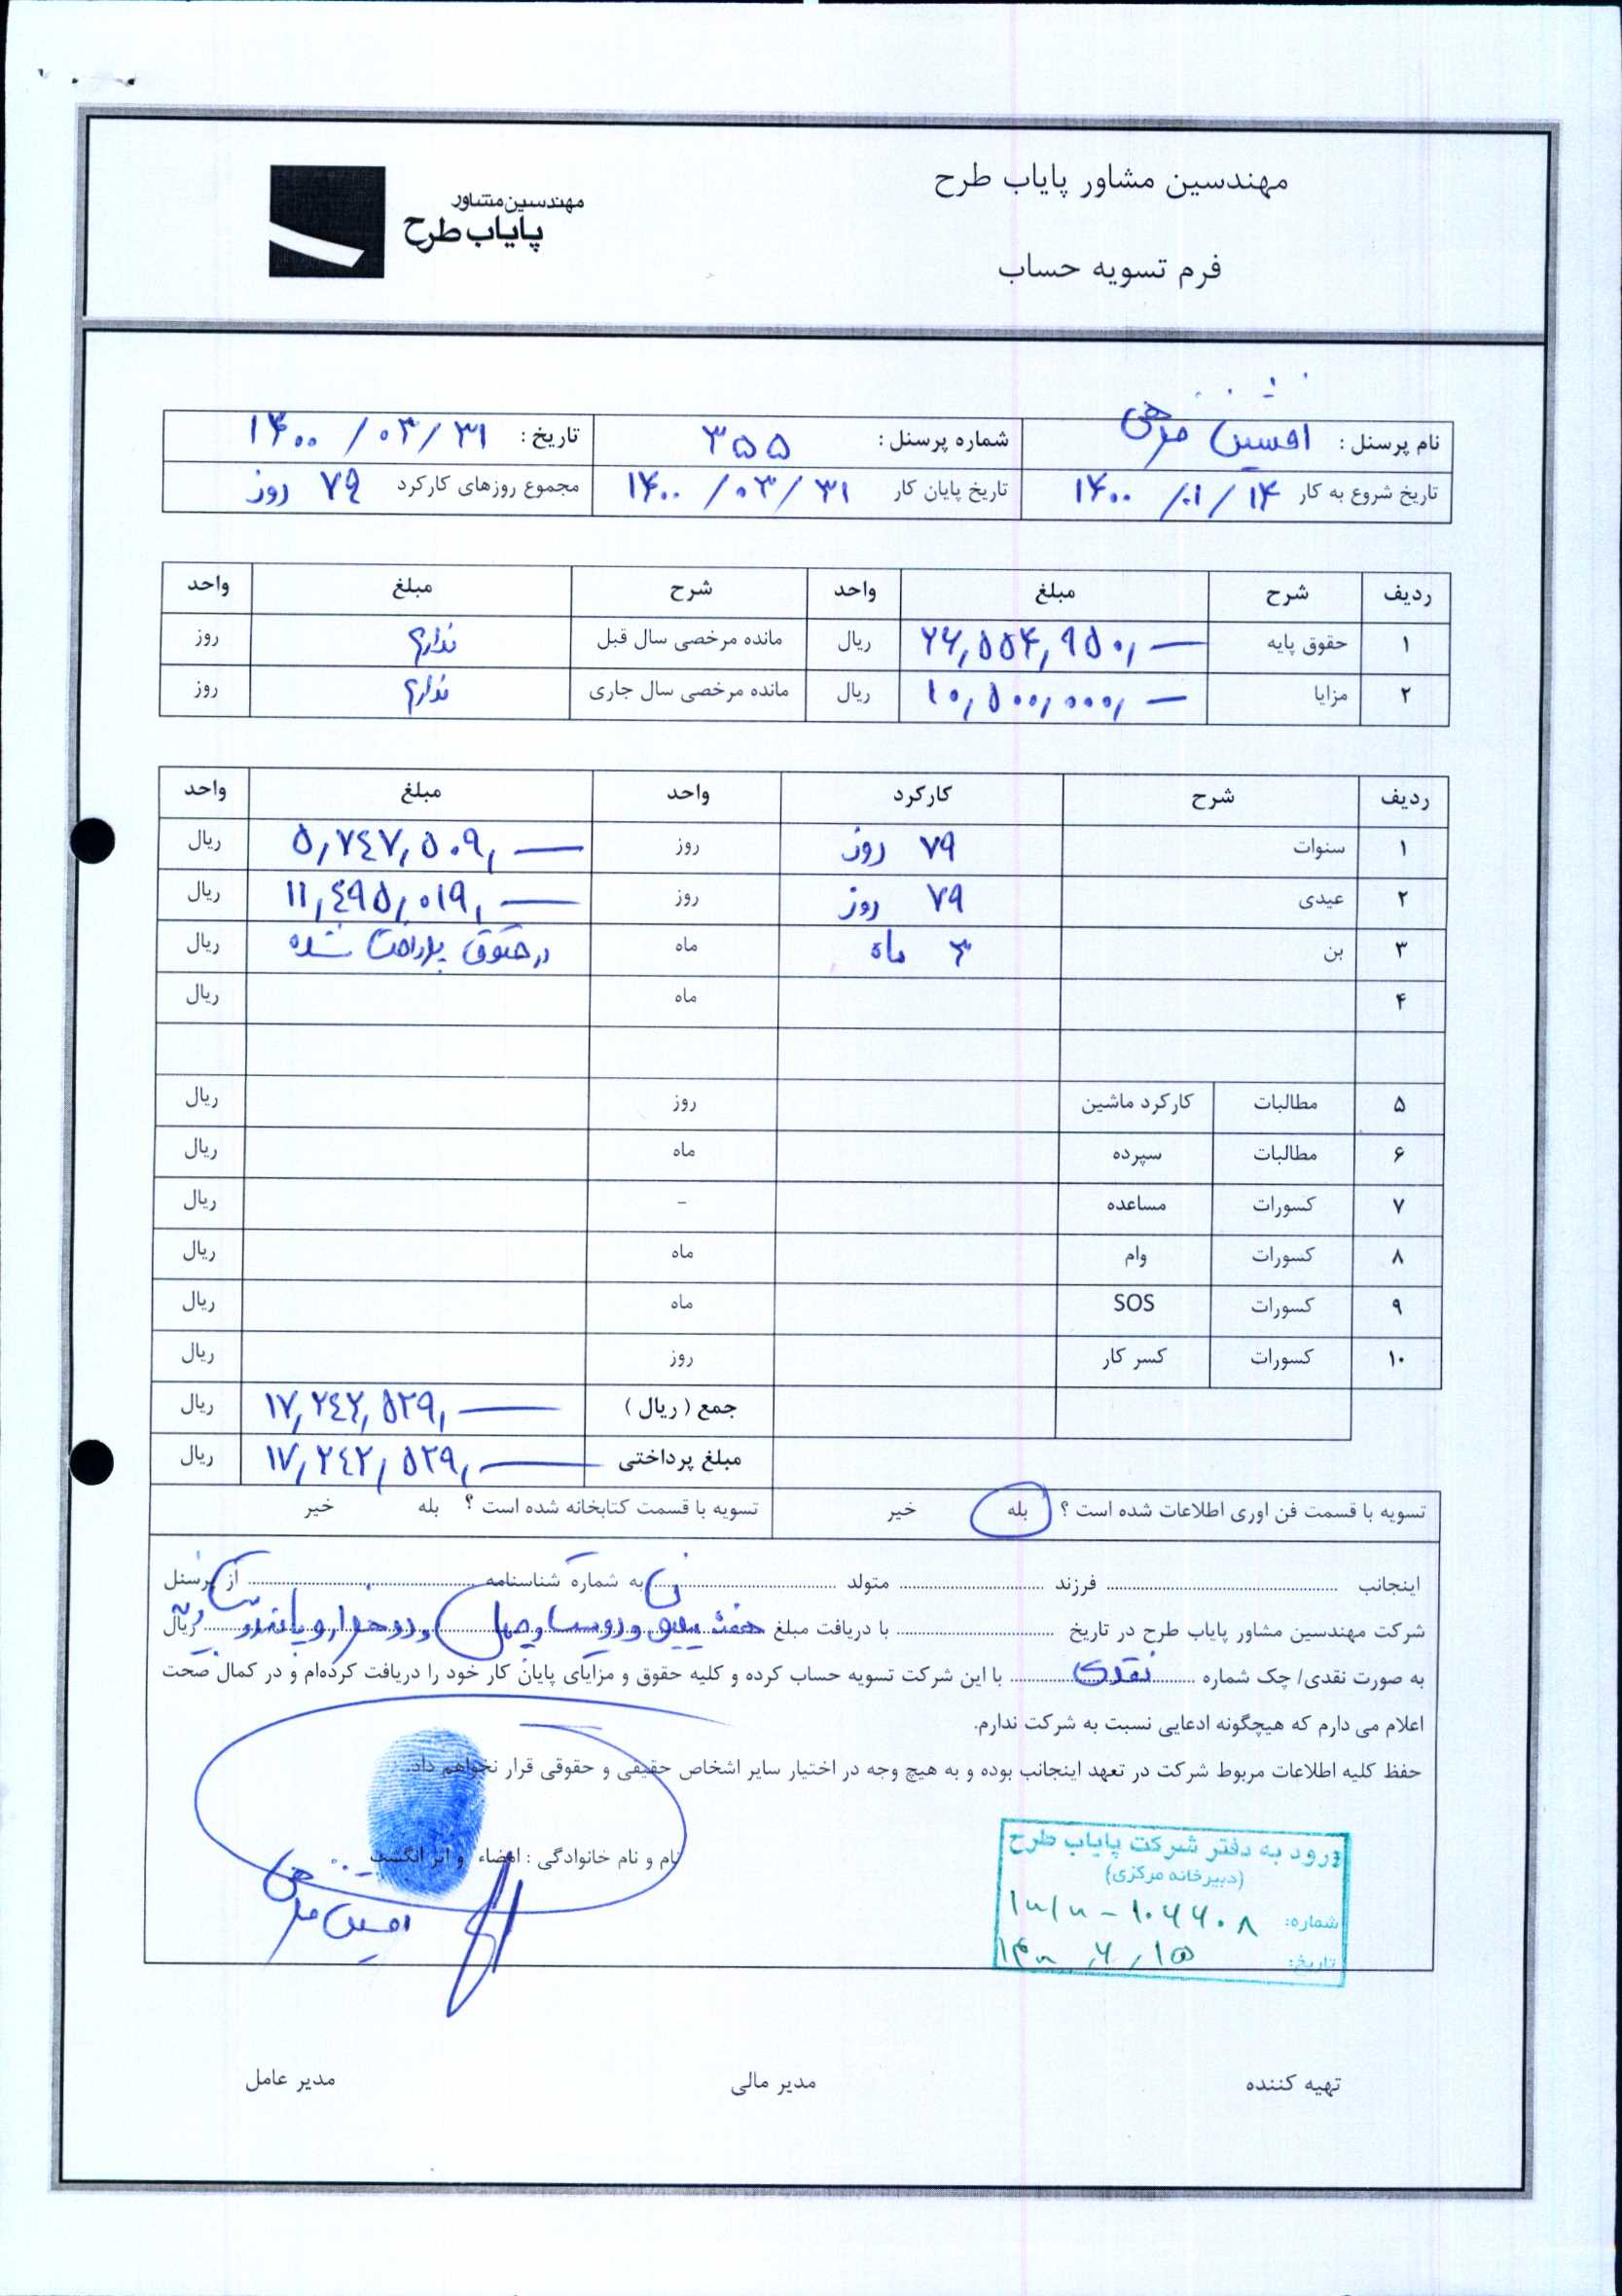 مهندسین مشاور پایاب طرح
مهندسین مشاور
پایاب طرح
فرم تسویه حساب
نام پرسنل : افشین شماره پرسنل : ۳۵۵ تاریخ : ۱۴۰۰/۰۳/۳۱
تاریخ شروع به کار ۱۴۰۰/۰۱/۱۴ تاریخ پایان کار ۱۴۰۰/۰۳/۳۱ مجموع روزهای کارکرد ۷۹ روز
ردیف شرح مبلغ واحد شرح مبلغ واحد
۱ حقوق پایه ۲۶,۵۵۴,۹۵۰,— ریال مانده مرخصی سال قبل ندارم روز
۲ مزایا ۱۰,۵۰۰,۰۰۰,— ریال مانده مرخصی سال جاری ندارم روز
ردیف شرح کارکرد واحد مبلغ واحد
۱ سنوات ۷۹ روز روز ۵,۷۴۷,۵۰۹,— ریال
۲ عیدی ۷۹ روز روز ۱۱,۴۹۵,۰۱۹,— ریال
۳ بن ۳ ماه ماه در حقوق پرداخت شده ریال
۴ ماه ریال
۵ مطالبات کارکرد ماشین روز ریال
۶ مطالبات سپرده ماه ریال
۷ کسورات مساعده - ریال
۸ کسورات وام ماه ریال
۹ کسورات SOS ماه ریال
۱۰ کسورات کسر کار روز ریال
جمع ( ریال ) ۱۷,۲۴۲,۵۲۹,— ریال
مبلغ پرداختی ۱۷,۲۴۲,۵۲۹,— ریال
تسویه با قسمت فن اوری اطلاعات شده است ؟ بله خیر تسویه با قسمت کتابخانه شده است ؟ بله خیر
اینجانب فرزند متولد به شماره شناسنامه از پرسنل
شرکت مهندسین مشاور پایاب طرح در تاریخ با دریافت مبلغ هفده میلیون و دویست و چهل و دو هزار و پانصد و ریال
به صورت نقدی/ چک شماره نقدی با این شرکت تسویه حساب کرده و کلیه حقوق و مزایای پایان کار خود را دریافت کرده‌ام و در کمال صحت
اعلام می دارم که هیچگونه ادعایی نسبت به شرکت ندارم.
حفظ کلیه اطلاعات مربوط شرکت در تعهد اینجانب بوده و به هیچ وجه در اختیار سایر اشخاص حقیقی و حقوقی قرار نخواهم داد.
نام و نام خانوادگی : امضاء و اثر انگشت
افشین
ورود به دفتر شرکت پایاب طرح
(دبیرخانه مرکزی)
شماره:
تاریخ:
تهیه کننده مدیر مالی مدیر عامل